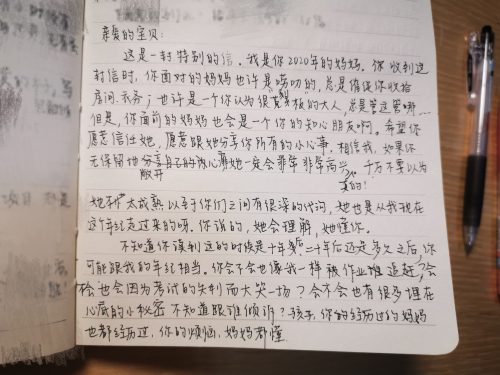 亲爱的宝贝:
这是一封特别的信。我是你2020年的妈妈。你收到这
封信时,你面对的妈妈也许是唠叨的,总是催促你收拾
房间、衣务;也许是一个你认为很古板的大人,总是管这管哪…
但是,你面前的妈妈也会是一个你的知心朋友啊。希望你
愿意信任她,愿意跟她分享你所有的小心事。相信我,如果你
无保留地分享自己的内心,她一定会非常非常高兴,千万不要以为
敞开
真的!
她不太成熟以至于你们之间有很深的代沟,她也是从我现在
这个年纪走过来的呀。你说的,她会理解,她懂你。
不知道你读到这的时候是十年后、二十年后还是多久之后,你
可能跟我的年纪相当。你会不会也像我一样被作业堆追赶?会
不会也会因为考试的失利而大哭一场?会不会也有很多埋在
心底的小秘密不知道跟谁倾诉?孩子,你的经历过的妈妈
也都经历过,你的烦恼,妈妈都懂